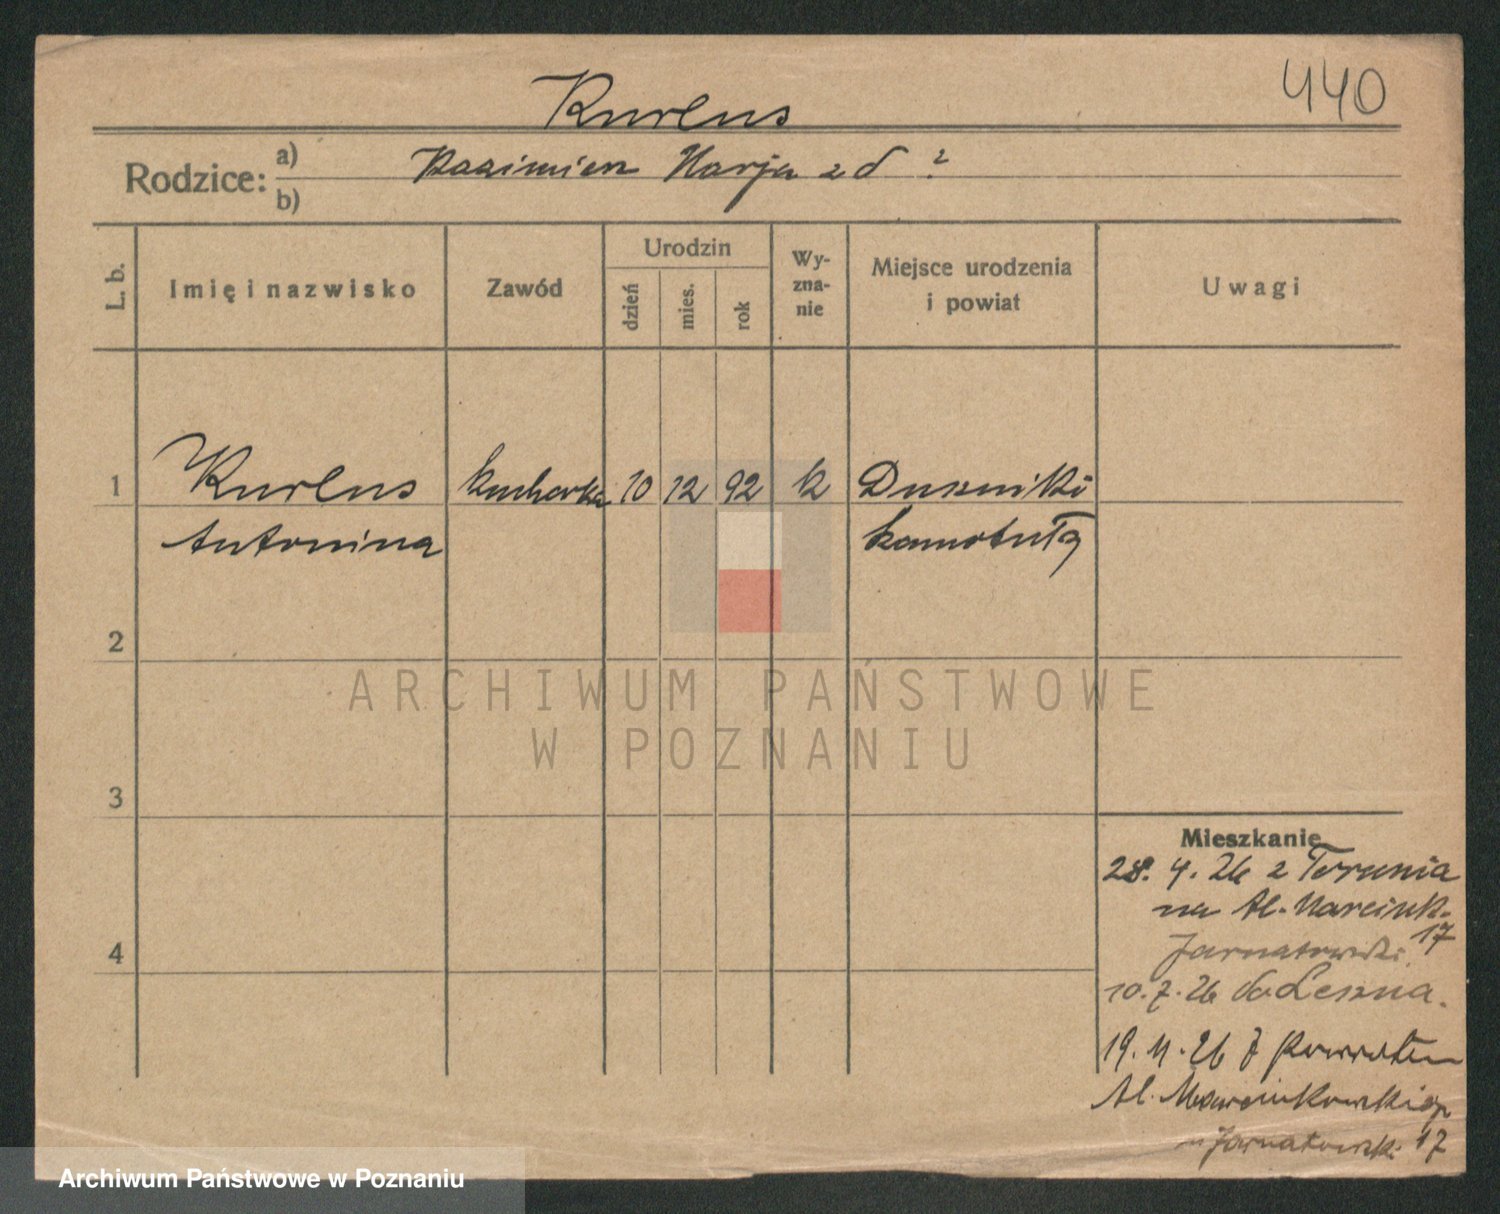 Kurlus
440
Rodzice: a) Kazimierz Marja z d ?
b)
L. b.
Imię i nazwisko
Zawód
Urodzin
dzień
mies.
rok
Wy-
zna-
nie
Miejsce urodzenia
i powiat
Uwagi
1 Kurlus kucharka 10 12 92 k Duszniki
Antonina
2
3
4
Mieszkanie
28. 4. 26 z Torunia
na Al. Marcink.
17
Jarnatowski.
10. 7. 26 do Leszna.
19. 11. 26 z powrotem
Al. Marcinkowskiego
u Jarnatowski 17
ARCHIWUM PAŃSTWOWE
W POZNANIU
Archiwum Państwowe w Poznaniu